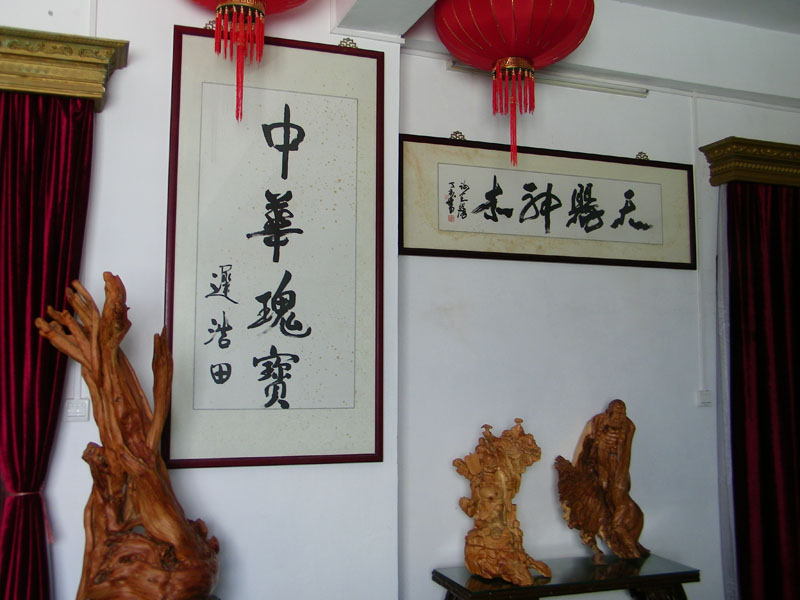 中華瑰寶
遲浩田
天賜神木